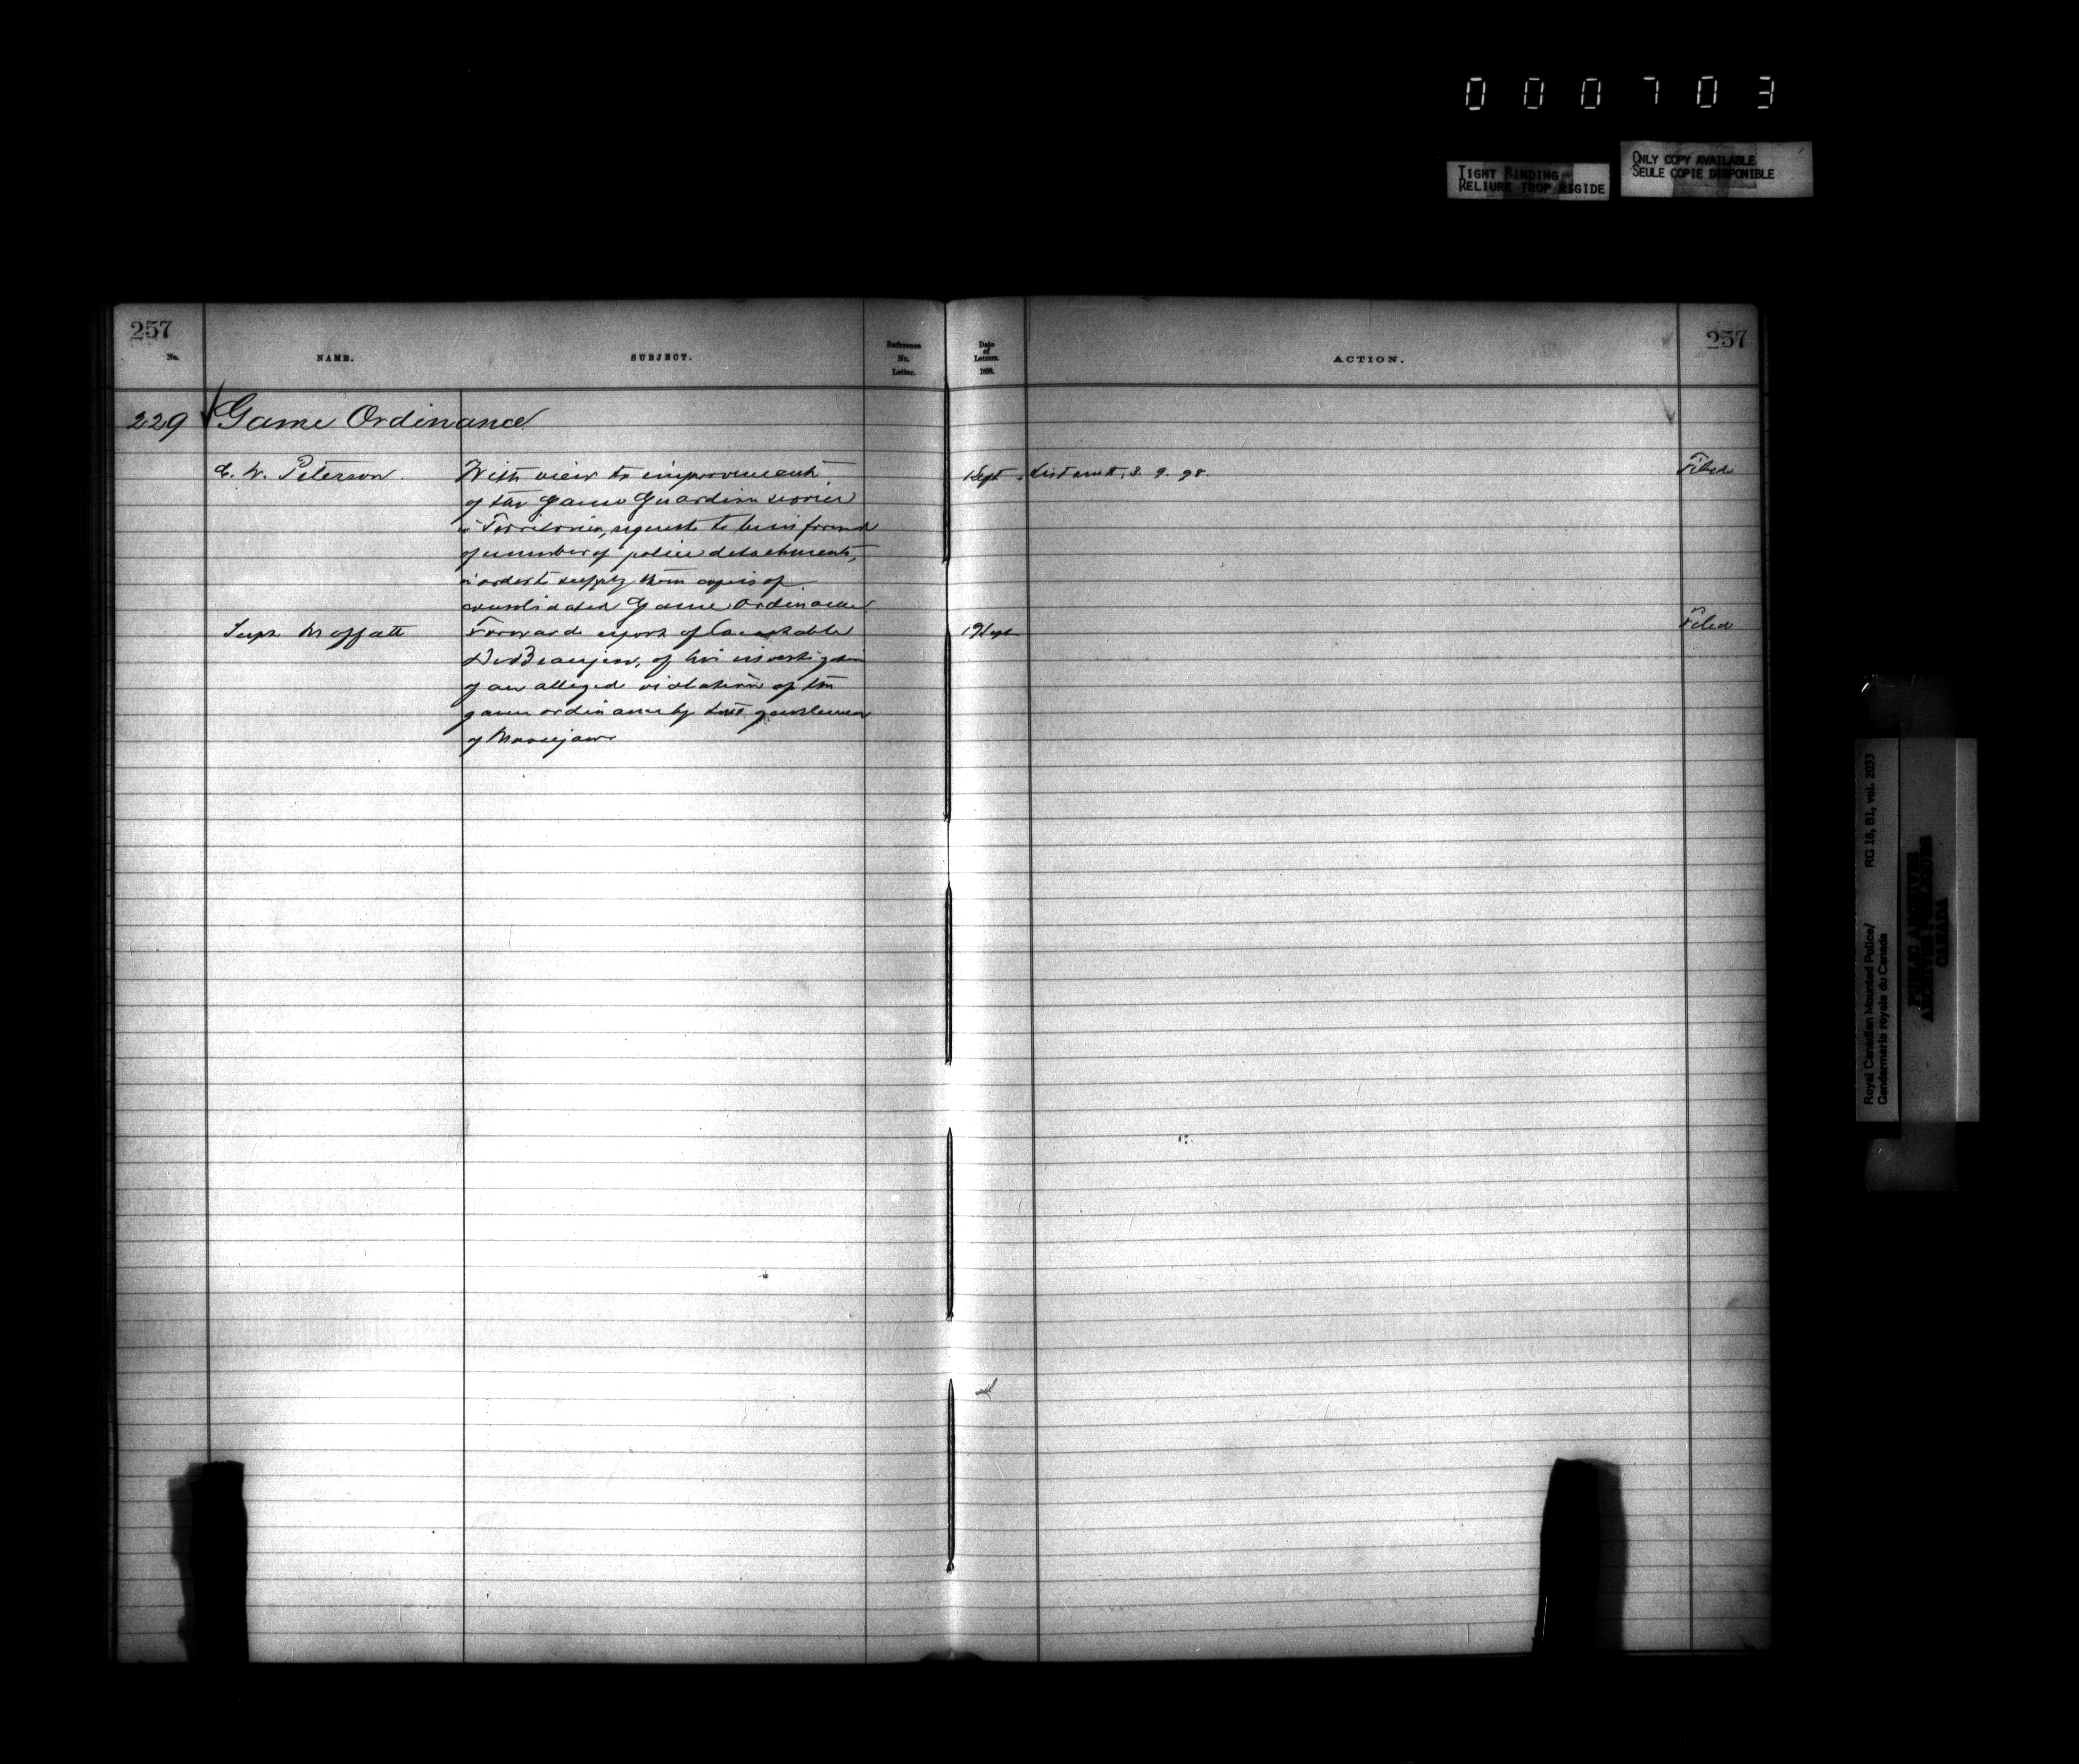 000703
TIGHT BINDING
RELIURE TROP RIGIDE
ONLY COPY AVAILABLE
SEULE COPIE DISPONIBLE
257
No.
NAME.
SUBJECT.
Reference
No.
Letter.
Date
of
Letters.
1898.
ACTION.
257
229 Game Ordinance
C. W. Peterson.
With view to improvement
of the Game Guardian service
in Territories, requests to be informed
of number of police detachments,
in order to supply them copies of
consolidated Game Ordinance
1 Sept
List sent, 3. 9. 98.
Filed
Supt Moffatt
Forwards report of Constable
of his investigation
of an alleged violation of the
game ordinance by gentlemen
of Moosejaw
19 Sept
Filed
Royal Canadian Mounted Police/
Gendarmerie royale du Canada
RG 18, B1, vol. 2033
PUBLIC ARCHIVES
ARCHIVES PUBLIQUES
CANADA